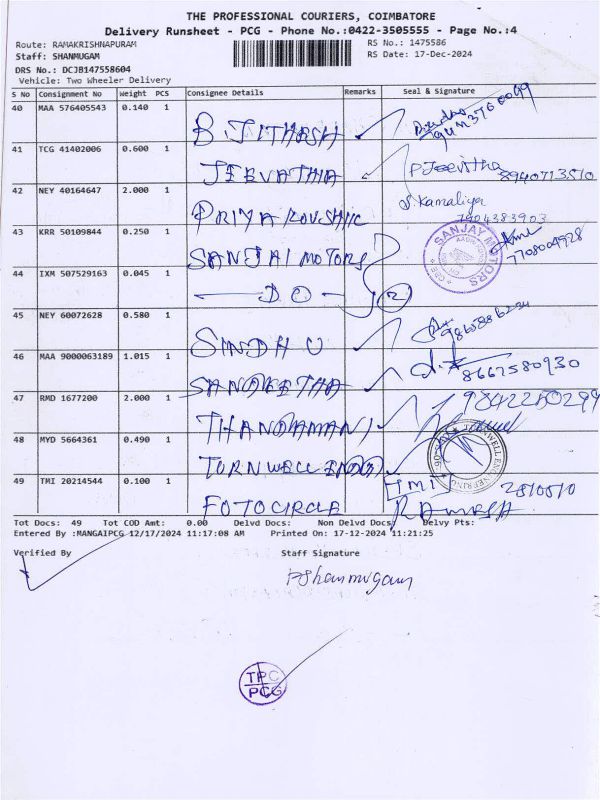 THE PROFESSIONAL COURIERS, COIMBATORE
Delivery Runsheet - PCG - Phone No.:0422-3505555 - Page No.:4
Route: RAMAKRISHNAPURAM RS No.: 1475586
Staff: SHANMUGAM RS Date: 17-Dec-2024
DRS No.: DCJB147558604
Vehicle: Two Wheeler Delivery
S No Consignment No Weight PCS Consignee Details Remarks Seal & Signature
40 MAA 576405543 0.140 1 B. JITHESH
41 TCG 41402006 0.600 1 JEEVATHA P Jeevitha 8940713510
42 NEY 40164647 2.000 1 PRIYA KOUSHIC S. Kamaliya 7904383903
43 KRR 50109844 0.250 1 SANJAI MOTORS SANJAY MOTORS 7708004928
44 IXM 507529163 0.045 1 DO 2
45 NEY 60072628 0.580 1 SINDHU
46 MAA 9000063189 1.015 1 SANGEETHA 8667580930
47 RMD 1677200 2.000 1 THANGAMANI 9842280299
48 MYD 5664361 0.490 1 TURNWELL ENGG
49 TMI 20214544 0.100 1 FOTOCIRCLE [TMI] 2810510 RAMESH
Tot Docs: 49 Tot COD Amt: 0.00 Delvd Docs: Non Delvd Docs: Delvy Pts:
Entered By :MANGAIPCG 12/17/2024 11:17:08 AM Printed On: 17-12-2024 11:21:25
Verified By Staff Signature
P Shanmugam
TPC
PCG